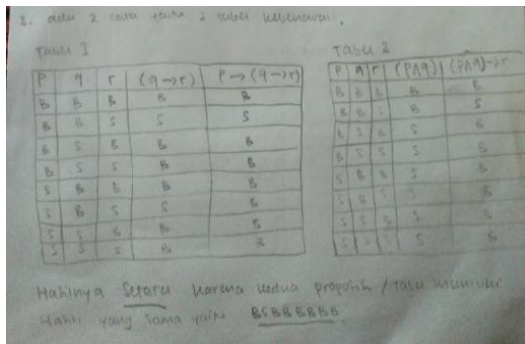 1. ada 2 cara yaitu 2 tabel kebenaran.
Tabel I
P q r (q→r) P→(q→r)
B B B B B
B B S S S
B S B B B
B S S B B
S B B B B
S B S S B
S S B B B
S S S B B
Tabel 2
P q r (P∧q) (P∧q)→r
B B B B B
B B S B S
B S B S B
B S S S B
S B B S B
S B S S B
S S B S B
S S S S B
Hasilnya Setara karena kedua proposisi /
Hasil yang sama yaitu BSBBBBBB